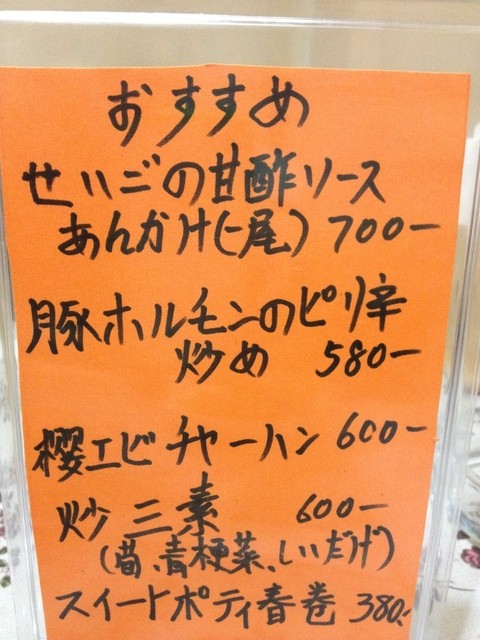 おすすめ
せいごの甘酢ソース
あんかけ(一尾) 700-
豚ホルモンのピリ辛
炒め 580-
櫻エビチャーハン 600-
炒三素 600-
(筍、青梗菜、しいだけ)
スイートポティ春巻 380.-